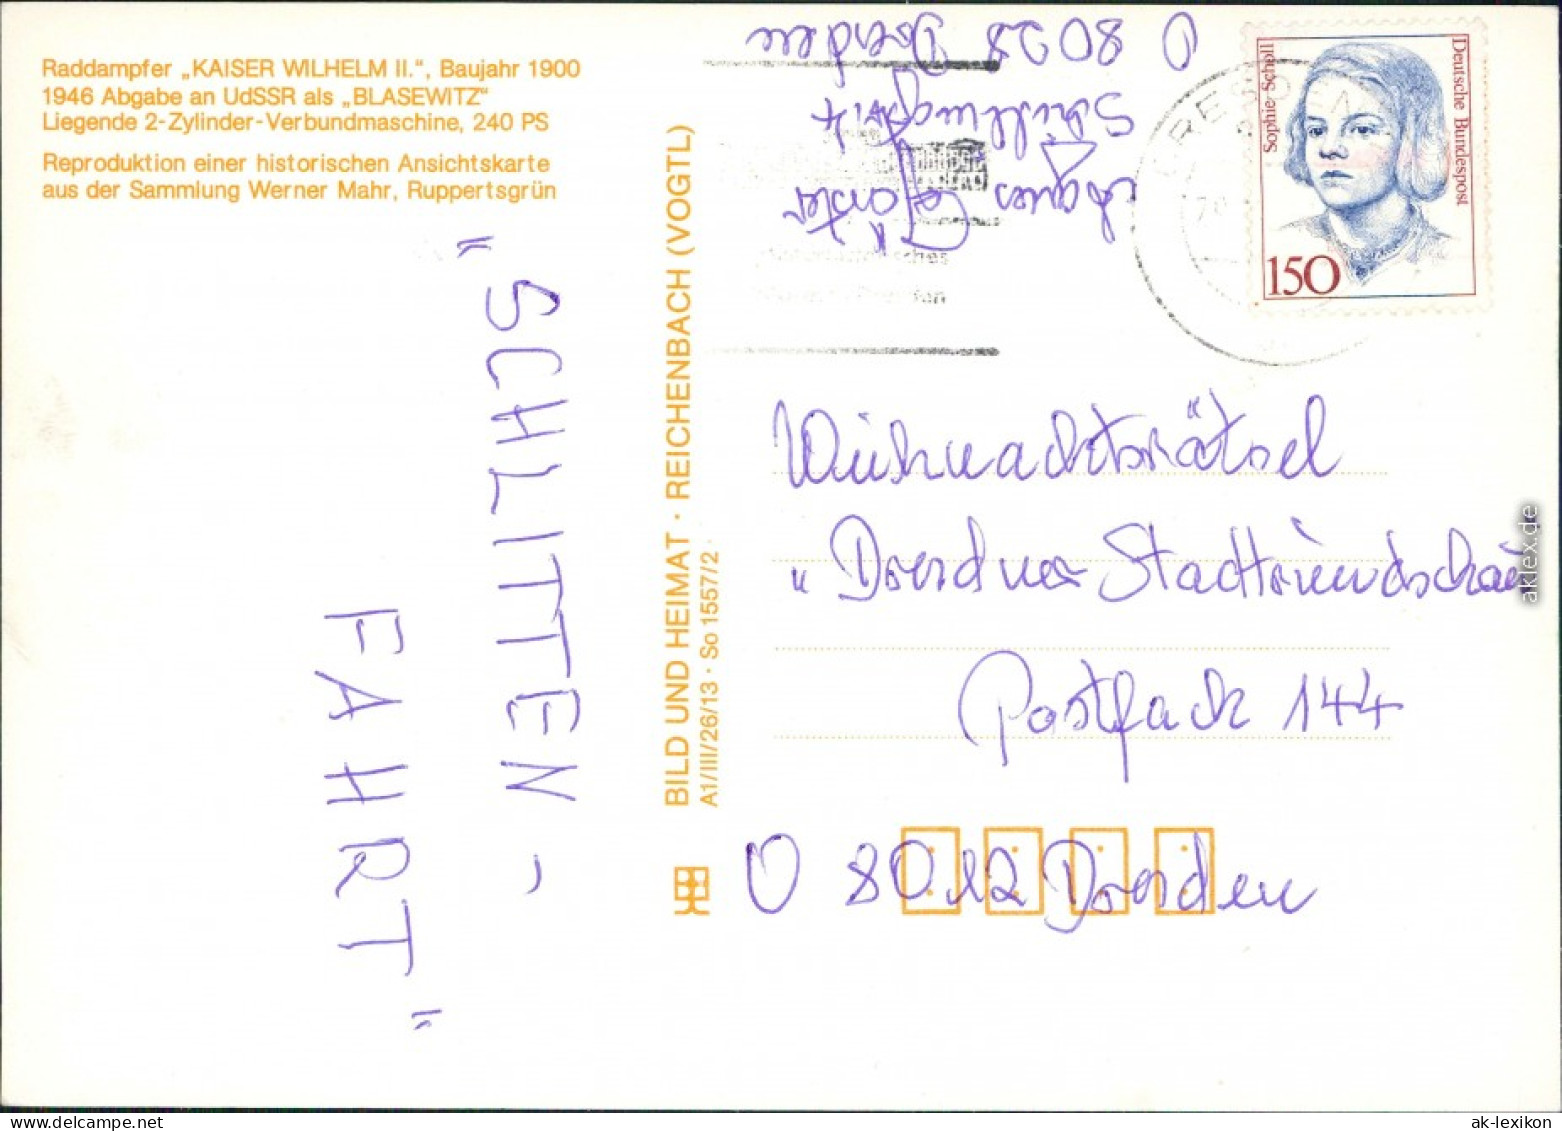 Raddampfer „KAISER WILHELM II.", Baujahr 1900
1946 Abgabe an UdSSR als „BLASEWITZ"
Liegende 2-Zylinder-Verbundmaschine, 240 PS
Reproduktion einer historischen Ansichtskarte
aus der Sammlung Werner Mahr, Ruppertsgrün
"SCHLITTEN-
FAHRT"
BILD UND HEIMAT · REICHENBACH (VOGTL)
A1/III/26/13 · So 1557/2
Agnes
O 8028 Dresden
DRESDEN
Sophie Scholl
Deutsche Bundespost
150
Weihnachtsrätsel
"Dresdner Stadtrundschau
Postfach 144
O 8012 Dresden
aklex.de
ak-lexikon